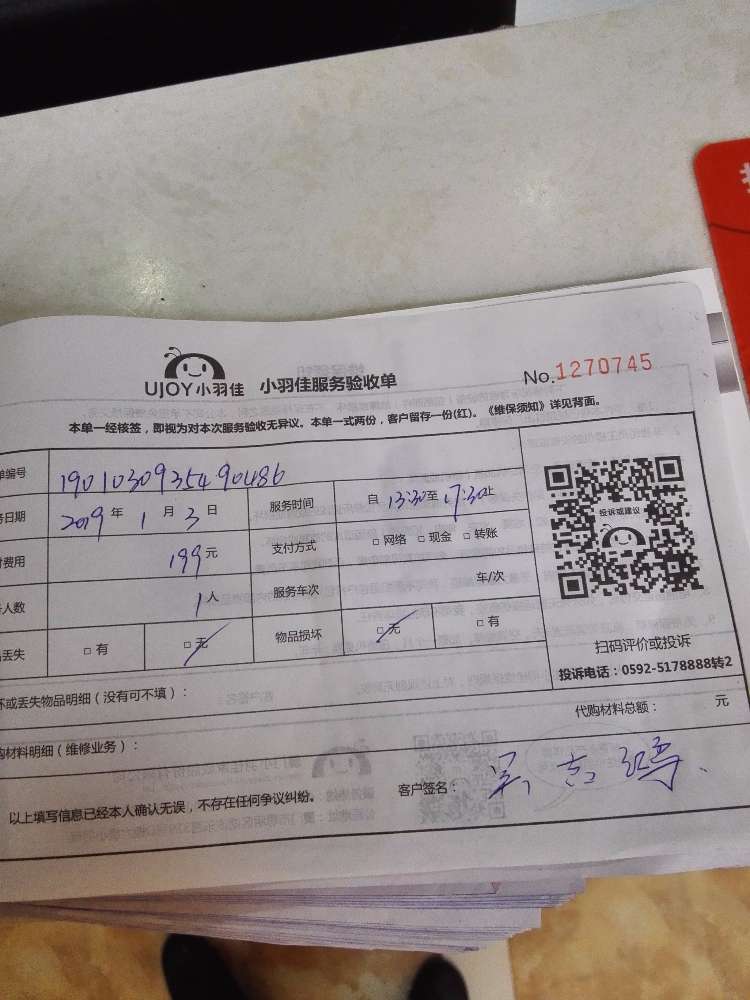 UJOY小羽佳 小羽佳服务验收单 No.1270745
本单一经核签，即视为对本次服务验收无异议。本单一式两份，客户留存一份(红)。《维保须知》详见背面。
单编号 1901030935490486
务日期 2019 年 1 月 3 日 服务时间 自 13:30至 17:30止
费用 199元 支付方式 □ 网络 □ 现金 □ 转账
人数 1人 服务车次 车/次
丢失 □ 有 □ 无 物品损坏 □ 无 □ 有
投诉或建议
扫码评价或投诉
投诉电话：0592-5178888转2
坏或丢失物品明细（没有可不填）：
购材料明细（维修业务）： 代购材料总额： 元
以上填写信息已经本人确认无误，不存在任何争议纠纷。 客户签名：